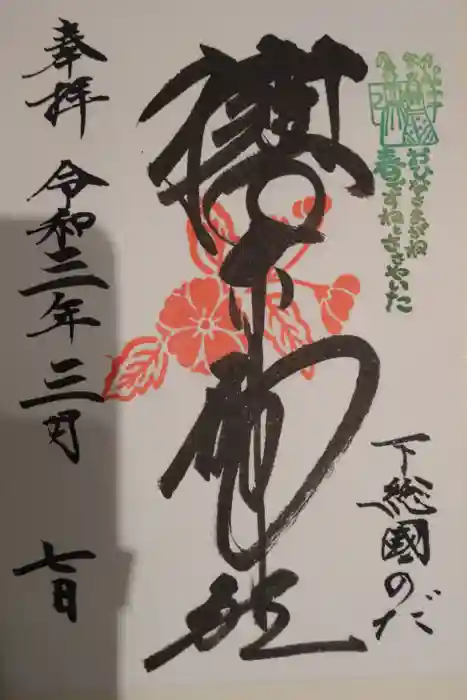 おひなさまがね
春ですねとささやいた
下総國のだ
櫻木神社
奉拝 令和三年三月七日